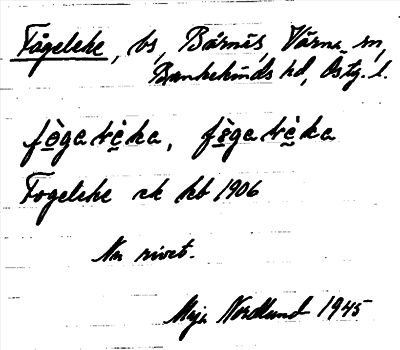 Fågeleke, bs, Bårnäs, Värna sn,
Bankekinds hd, Östg. l.
fògavèka, fògavèka
Fogeleke ck kb 1906
Nu rivet.
Maja Nordlund 1945